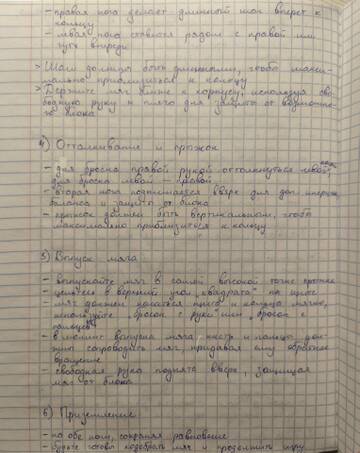 - правая нога делает длинный шаг вперёд к
кольцу
- левая нога ставится рядом с правой или
чуть впереди
> Шаги должны быть широкими, чтобы макси-
мально приблизиться к кольцу
> Держите мяч ближе к корпусу, используя сво-
бодную руку и плечо для защиты от возможно-
го блока
4) Отталкивание и прыжок
- для броска правой рукой оттолкнуться левой,
для броска левой - правой
- вторая нога поднимается вверх для доп. инерции,
баланса и защиты от блока
- прыжок должен быть вертикальным, чтобы
максимально приблизиться к кольцу
5) Выпуск мяча
- выпускайте мяч в самой высокой точке прыжка
- цельтесь в верхний угол "квадрата" на щите
- мяч должен касаться щита и кольца мягко,
используйте "бросок с руки" или "бросок с
пальцев"
- в момент выпуска мяча, кисть и пальцы дол-
жны сопроводить мяч, придавая ему обратное
вращение
- свободная рука поднята вверх, защищая
мяч от блока
6) Приземление
- на обе ноги, сохраняя равновесие
- будьте готовы подобрать мяч и продолжить игру